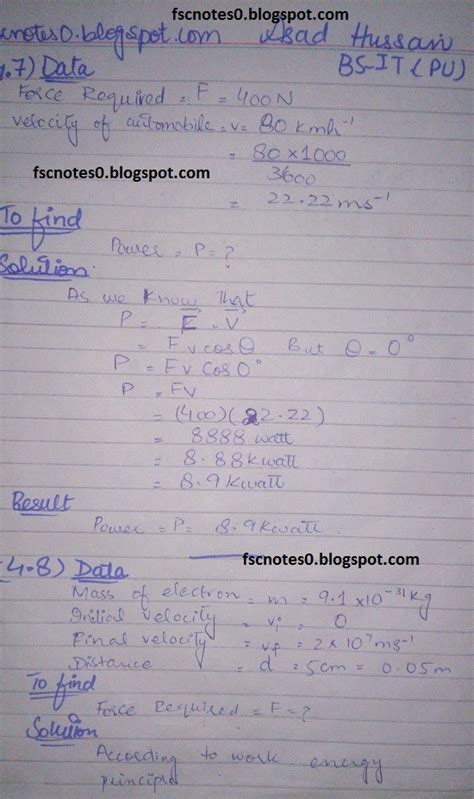 fscnotes0.blogspot.com
cnotes0.blogspot.com Asad Hussain
.7) Data BS-IT (PU)
Force Required = F = 400N
velocity of automobile = v = 80 kmh⁻¹
= 80 × 1000
3600
fscnotes0.blogspot.com
= 22.22 ms⁻¹
To find
Power = P = ?
Solution:
As we know That
P = F . V
= F v cos θ But θ = 0°
P = F v Cos 0°
P = FV
= (400)(22.22)
= 8888 watt
= 8.88 Kwatt
= 8.9 Kwatt
Result
Power = P = 8.9 Kwatt.
fscnotes0.blogspot.com
(4.8) Data
Mass of electron = m = 9.1 × 10⁻³¹ Kg
Initial velocity = vi = 0
Final velocity = vf = 2 × 10⁷ ms⁻¹
Distance = d = 5cm = 0.05m
To find
Force Required = F = ?
Solution
According to work energy
principle